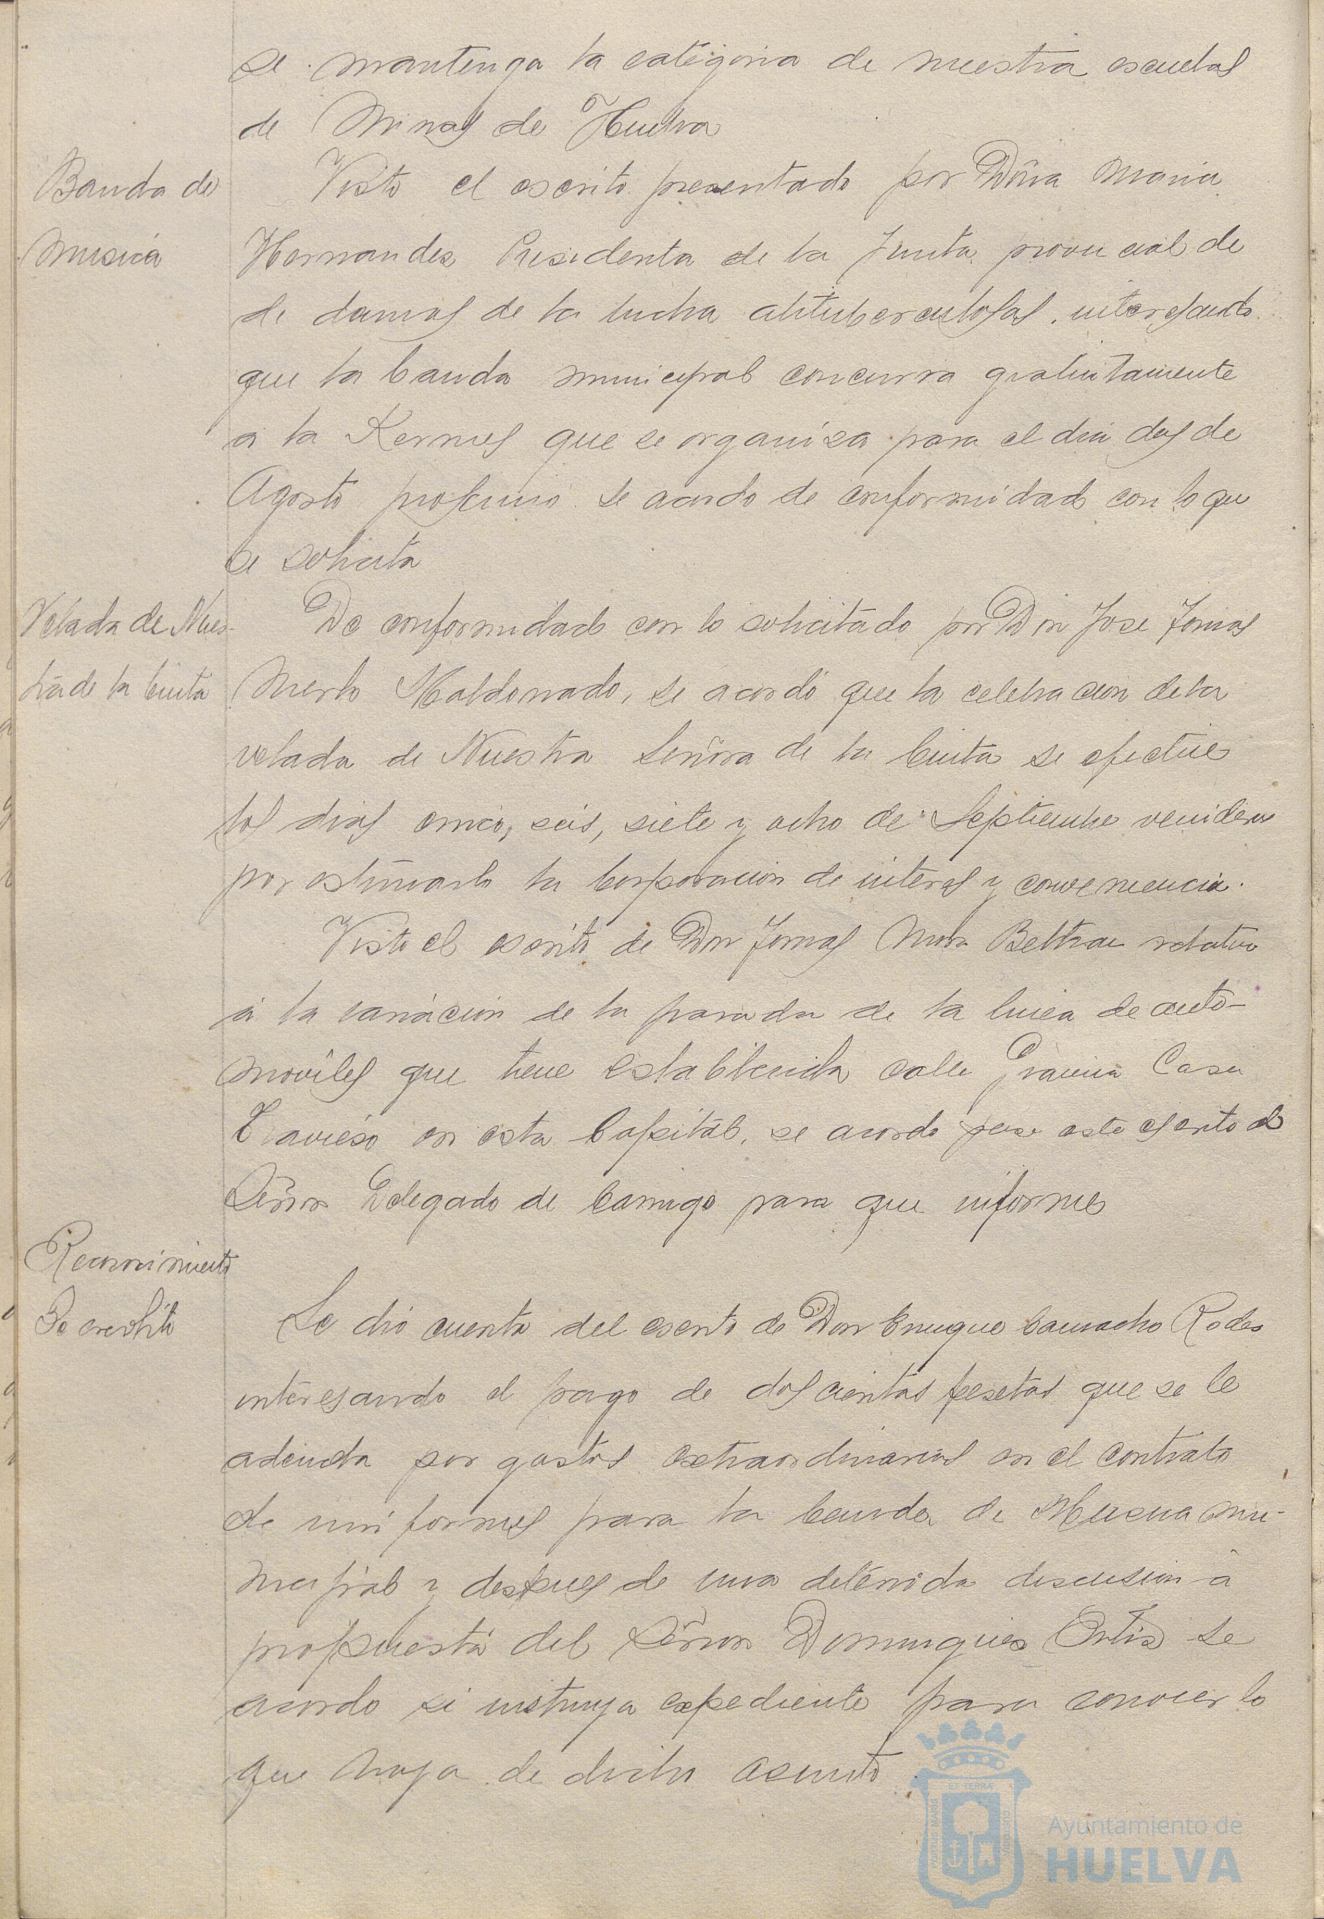 se mantenga la categoria de nuestra escuelas
de Minas de Huelva
Banda de
Musica
Visto el escrito presentado por Doña Maria
Hernandez Presidenta de la Junta provincial de
de damas de la lucha atituberculosas, interesando
que la banda municipal concurra gratuitamente
a la Kermes que se organiza para el dia dos de
Agosto proximo se acordo de conformidad con lo que
se solicita
Velada de Nues-
tra de la Cinta
De conformidad con lo solicitado por Don Jose Tomas
Merlo Maldonado, se acordó que la celebracion de la
velada de Nuestra Señora de la Cinta se efectue
los dias cinco, seis, siete y ocho de Septiembre venidero
por estimarlo la Corporacion de interes y conveniencia.
Visto el escrito de Don Tomas Mora Beltran relativo
a la variacion de la parada de la linea de auto-
moviles que tiene establecida calle Gravina Casa
en esta Capital, se acordo pase este escrito al
Señor Delegado de para que informe
Reconocimiento
De credito
Se dió cuenta del escrito de Don Enrique Camacho Rodes
interesando el pago de doscientas pesetas que se le
adeuda por gastos extraordinarios en el contrato
de uniformes para la banda de Musica mu-
nicipal y despues de una detenida discusion a
propuesta del Señor Dominguez Ortiz se
acordo se instruya expediente para conocer lo
que haya de dicho asunto
Ayuntamiento de
HUELVA